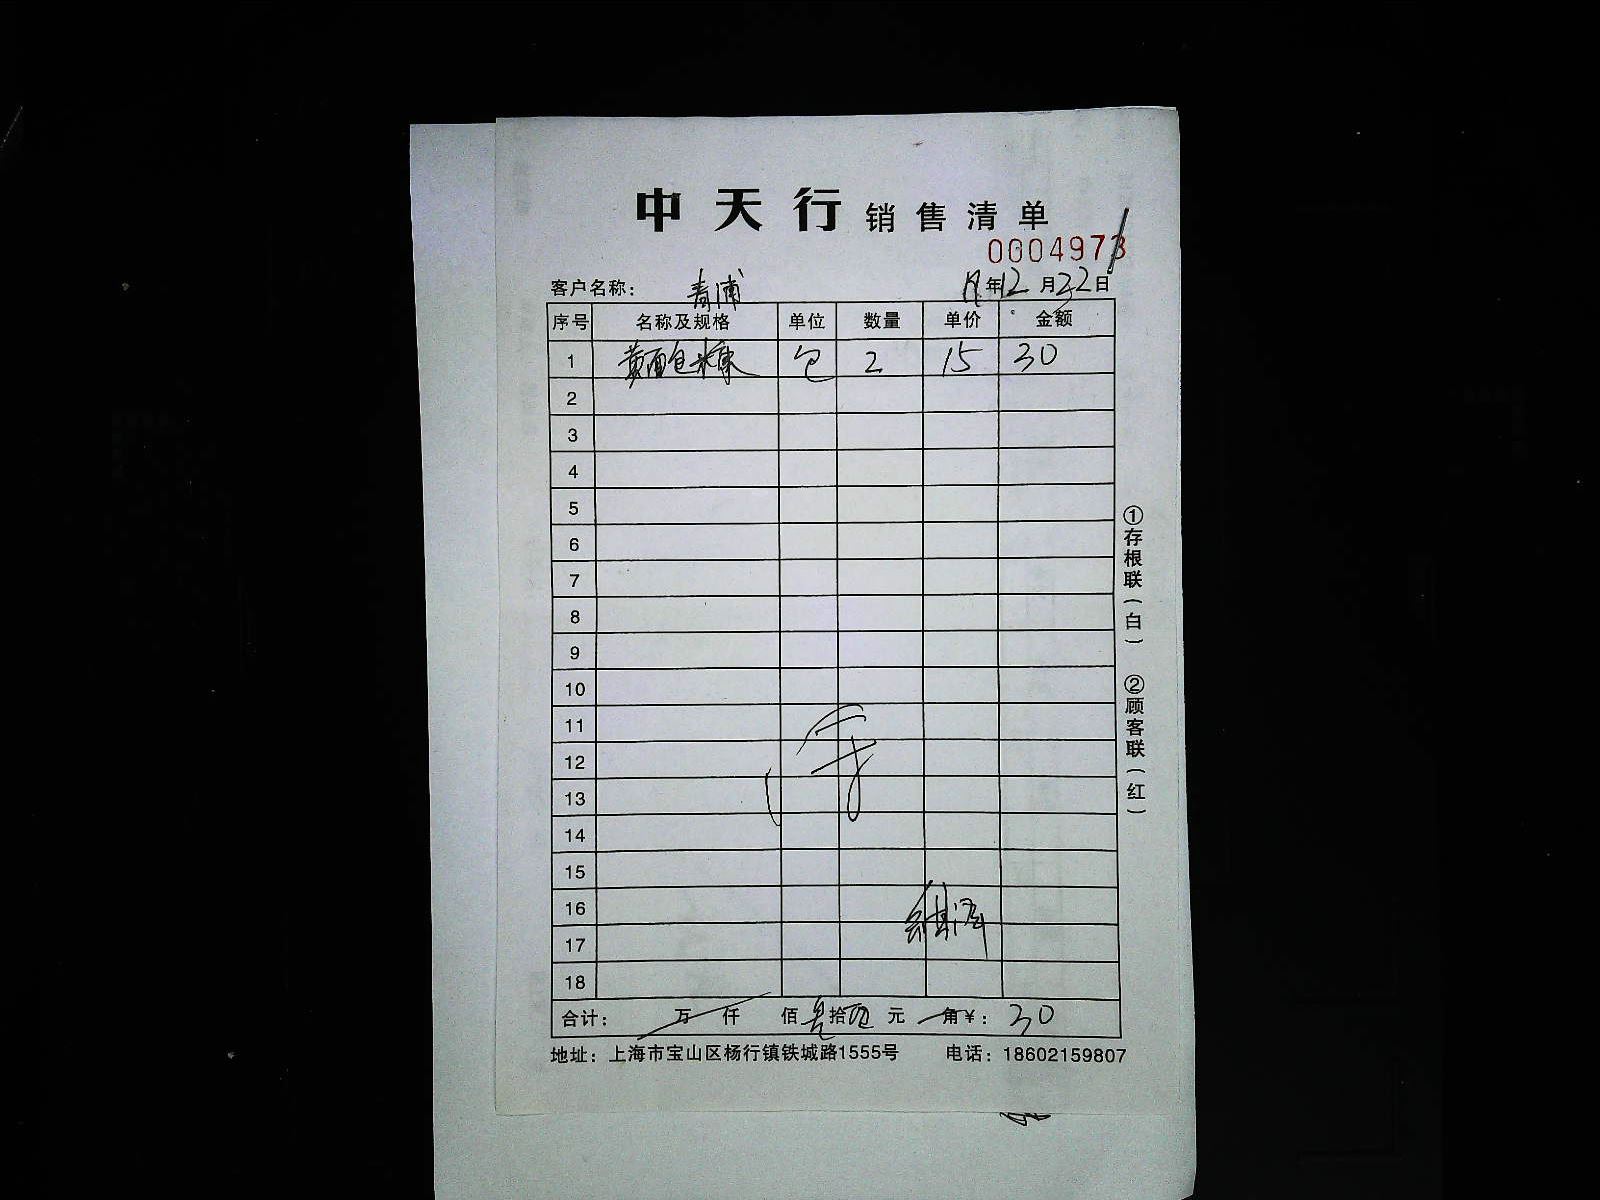 中天行 销售清单
0004973
客户名称： 青浦 年12月22日
序号 名称及规格 单位 数量 单价 金额
1 黄面包糠 包 2 15 30
2
3
4
5
6
7
8
9
10
11
12
13
14
15
16
17
18
合计： 万 仟 佰 叁拾 元 角 ¥： 30
地址：上海市宝山区杨行镇铁城路1555号 电话：18602159807
①存根联（白） ②顾客联（红）